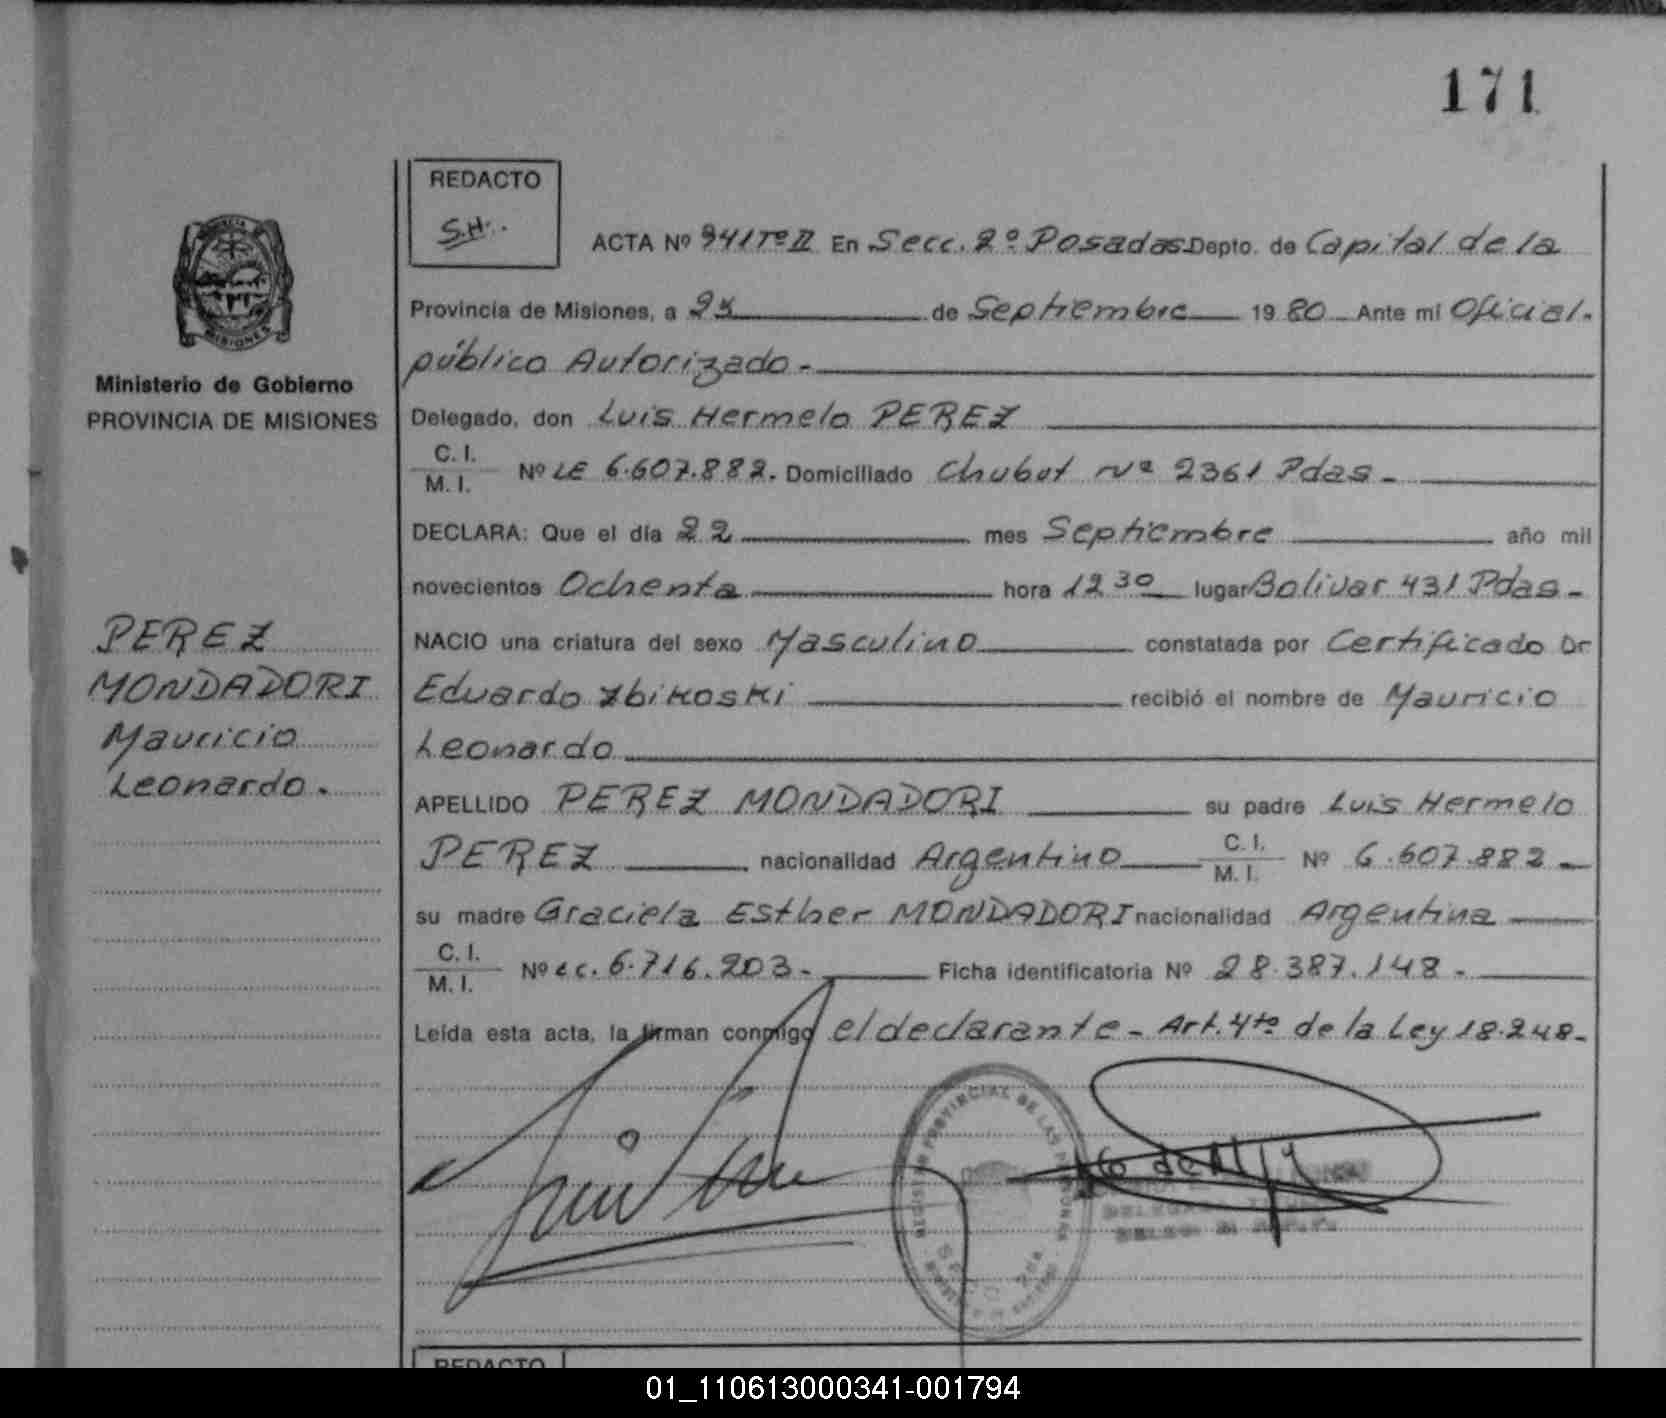 171
REDACTO
S.H.
ACTA Nº 941 Tº II En Secc. 2º Posadas Depto. de Capital de la
Provincia de Misiones, a de Septiembre 1980 Ante mi Oficial.
público Autorizado.-
Ministerio de Gobierno
PROVINCIA DE MISIONES
Delegado, don Luis Hermelo PEREZ
C. I.
M. I. Nº LE 6.607.882. Domiciliado Chubut Nº 2361 Pdas -
DECLARA: Que el día 22 mes Septiembre año mil
novecientos Ochenta hora 12 30 lugar Bolivar 431 Pdas -
PEREZ
MONDADORI
Mauricio
Leonardo.
NACIO una criatura del sexo Masculino constatada por Certificado Dr
Eduardo Zbikoski recibió el nombre de Mauricio
Leonardo
APELLIDO PEREZ MONDADORI su padre Luis Hermelo
PEREZ nacionalidad Argentino C. I.
M. I. Nº 6.607.882 -
su madre Graciela Esther MONDADORI nacionalidad Argentina
C. I.
M. I. Nº LC. 6.716.203.- Ficha identificatoria Nº 28.387.148 -
Leída esta acta, la firman conmigo el declarante - Art. 4to de la Ley 18.248 -
REGISTRO PROVINCIAL DE LAS PERSONAS
REDACTO
01_110613000341-001794